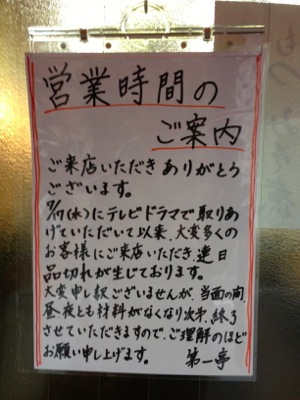 営業時間の
ご案内
ご来店いただきありがとう
ございます。
(水)にテレビドラマで取りあ
げていただいて以来、大変多くの
お客様にご来店いただき、連日
品切れが生じております。
大変申し訳ございませんが、当面の間、
昼夜とも材料がなくなり次第、終了
させていただきますので、ご理解のほど
お願い申し上げます。 第一亭